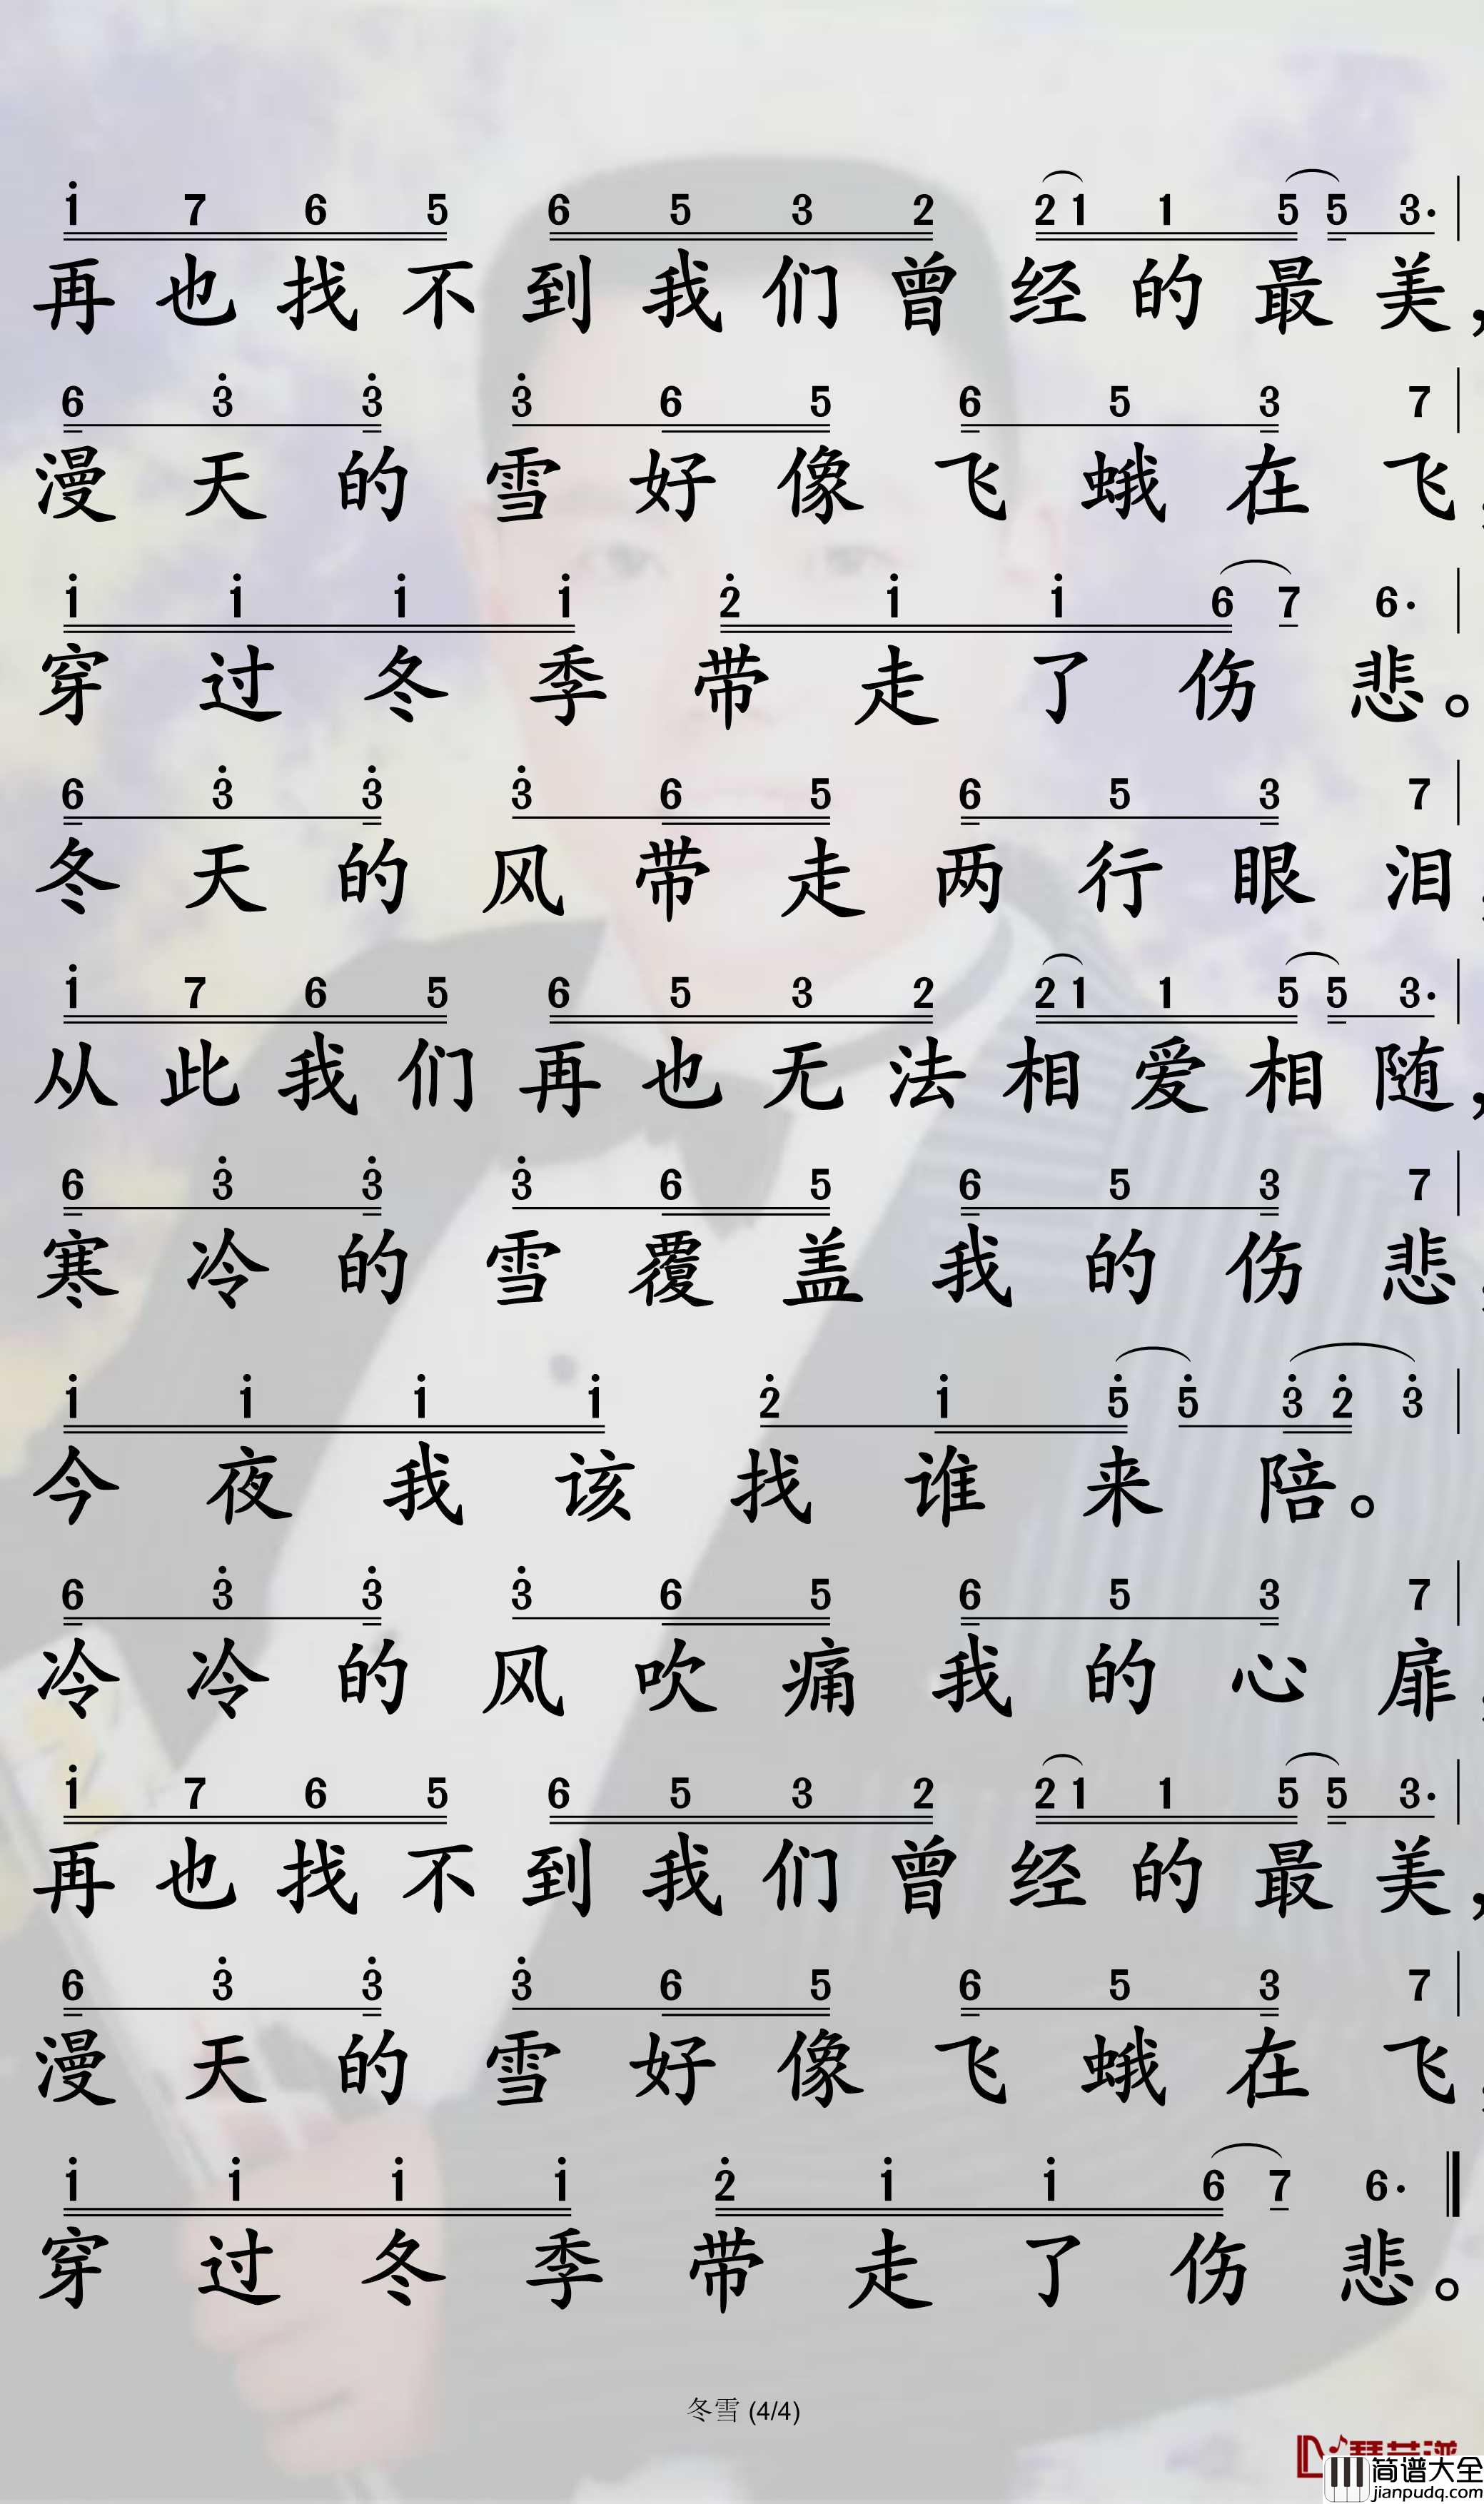 i 7 6 5 6 5 3 2 2 1 1 5 5 3·
再也找不到我们曾经的最美，
6 3̇ 3̇ 3̇ 6 5 6 5 3 7
漫天的雪好像飞蛾在飞，
i i i i 2̇ i i 6 7 6·
穿过冬季带走了伤悲。
6 3̇ 3̇ 3̇ 6 5 6 5 3 7
冬天的风带走两行眼泪，
i 7 6 5 6 5 3 2 2 1 1 5 5 3·
从此我们再也无法相爱相随，
6 3̇ 3̇ 3̇ 6 5 6 5 3 7
寒冷的雪覆盖我的伤悲，
i i i i 2̇ i 5̇ 5̇ 3̇ 2̇ 3̇
今夜我该找谁来陪。
6 3̇ 3̇ 3̇ 6 5 6 5 3 7
冷冷的风吹痛我的心扉，
i 7 6 5 6 5 3 2 2 1 1 5 5 3·
再也找不到我们曾经的最美，
6 3̇ 3̇ 3̇ 6 5 6 5 3 7
漫天的雪好像飞蛾在飞，
i i i i 2̇ i i 6 7 6·
穿过冬季带走了伤悲。
冬雪 (4/4)
简谱大全
jianpudq.com